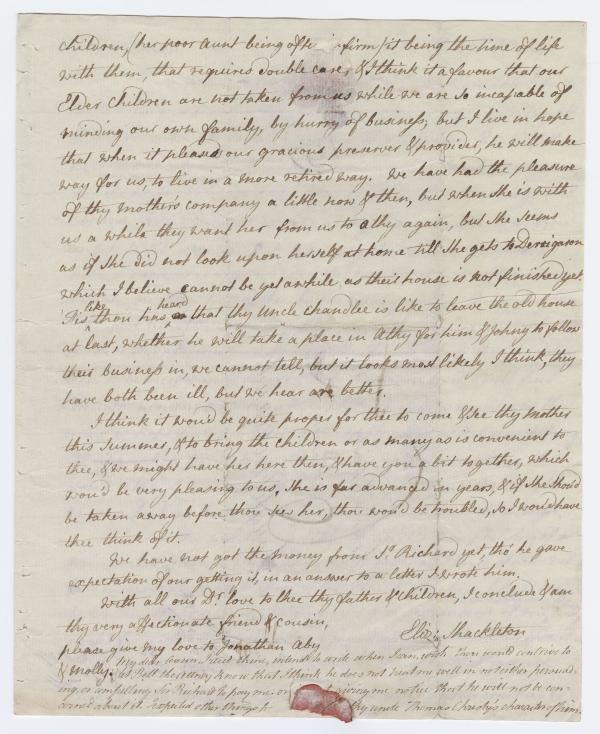 children, (her poor aunt being often infirm) it being the time of life
with them, that requires double care, & I think it a favour that our
Elder Children are not taken from us while we are so incapable of
minding our own family, by hurry of business, but I live in hope
that when it pleases our gracious preserver & provider, he will make
way for us, to live in a more retired way. We have had the pleasure
of thy mother's company a little now & then, but when she is with
us a while they want her from us to athy again, but she seems
as if she did not look upon herself at home till she gets to Dereigaron
which I believe cannot be yet awhile, as their house is not finished yet.
Tis like thou has heard that thy uncle Chandlee is like to leave the old house
at last, whether he will take a place in Athy for him & Johny to follow
their business in, we cannot tell, but it looks most likely I think, they
have both been ill, but we hear are better.
I think it wou'd be quite proper for thee to come & see thy mother
this summer, & to bring the children or as many as is convenient to
thee, & we might have her here then, & have you a bit together, which
wou'd be very pleasing to us, she is far advanced in years, & if she shou'd
be taken away before thou see her, thou wou'd be troubled, so I wou'd have
thee think of it.
We have not got the money from Sr. Richard yet, tho' he gave
expectation of our getting it, in an answer to a letter I wrote him.
With all our Dr. love to thee thy father & children, I conclude & am
thy very affectionate friend & cousin,
Eliz: Shackleton
please give my love to Jonathan Aby
& molly. My dear Cousin, I recd thine, intend to write when I can, wish thou would contrive to
let the Attorney know that I think he does not treat me well in not either persuad
ing, or compelling Sir Richard to pay me: or giving me notice that he will not be con
cerned about it. I expected other things thy uncle Thomas Chandlee's character of him.